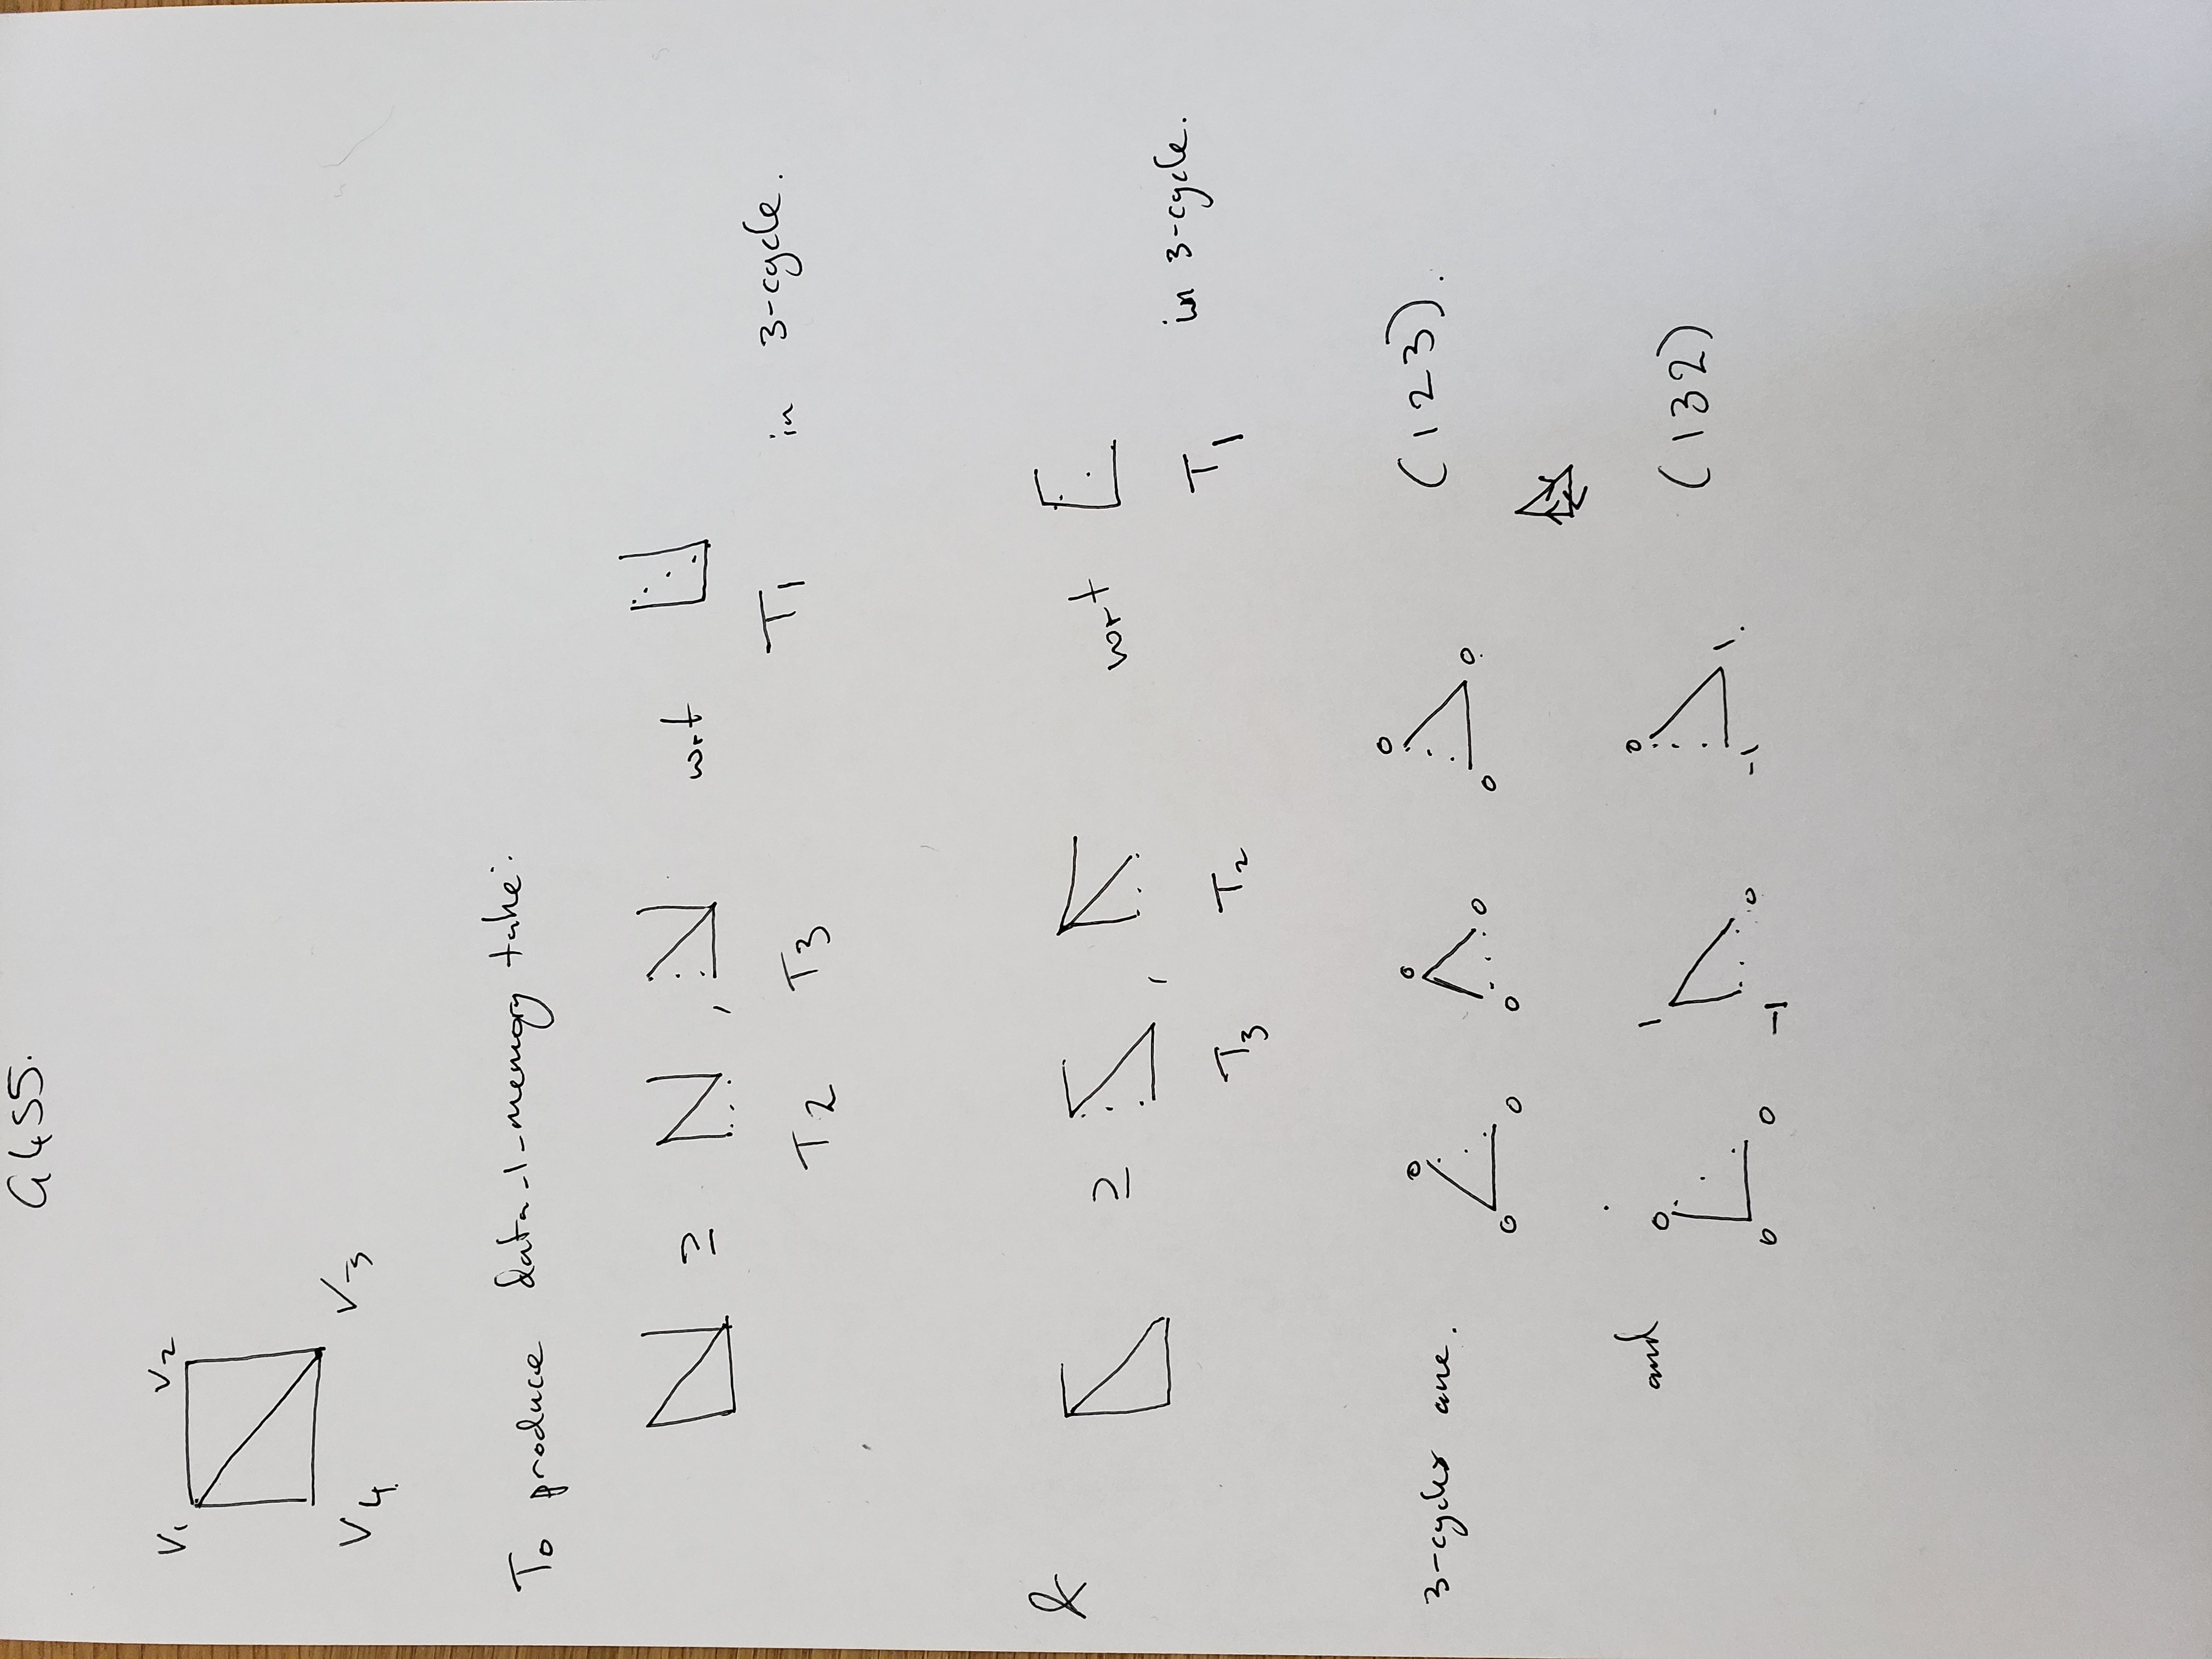 G4S5.
V1 V2
V4 V3
To produce data-1-memory take:
⊇ , wrt
T2 T3 T1 in 3-cycle.
& ⊇ , wrt
T3 T2 T1 in 3-cycle.
0 0 0
3-cycles are. (123).
0 0 0 0 0 0
and 0 1 0 (132)
0 0 -1 0 -1 1